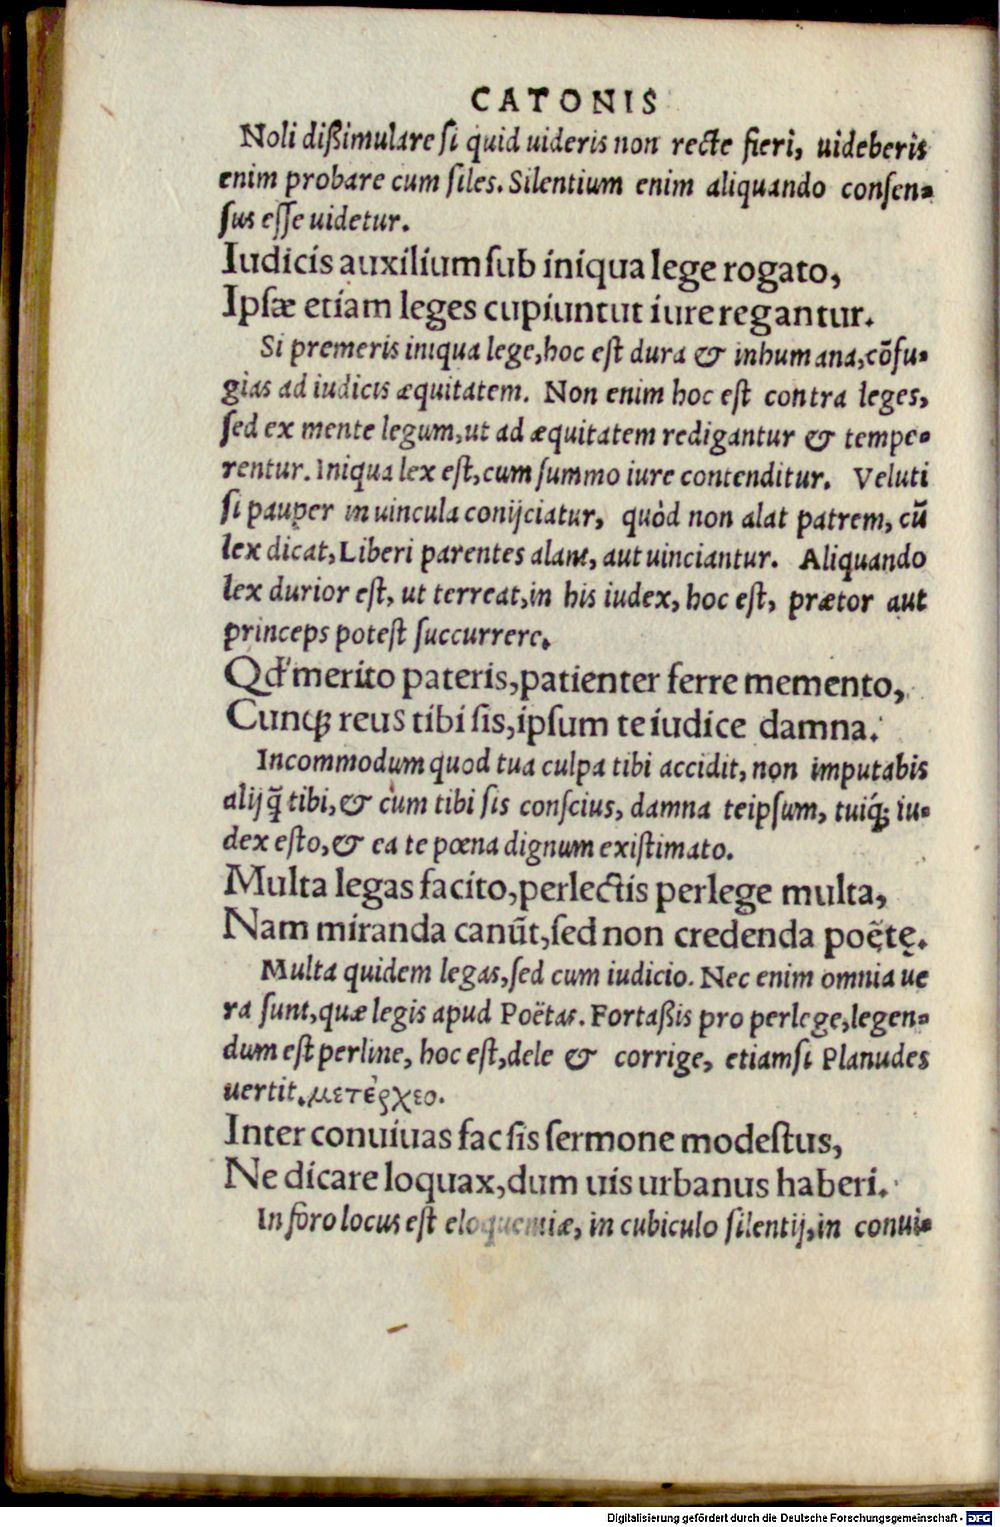 CATONIS
Noli dißimulare ſi quid uideris non recte fieri, uideberis
enim probare cum ſiles. Silentium enim aliquando conſen-
ſus eſſe uidetur.
Iudicis auxilium ſub iniqua lege rogato,
Ipſæ etiam leges cupiuntut iure regantur.
Si premeris iniqua lege, hoc eſt dura & inhumana, cõfu-
gias ad iudicis æquitatem. Non enim hoc eſt contra leges,
ſed ex mente legum, ut ad æquitatem redigantur & tempe-
rentur. Iniqua lex eſt, cum ſummo iure contenditur. Veluti
ſi pauper in uincula conijciatur, quòd non alat patrem, cũ
lex dicat, Liberi parentes alant, aut uinciantur. Aliquando
lex durior eſt, ut terreat, in his iudex, hoc eſt, prætor aut
princeps poteſt ſuccurrere.
Qđ merito pateris, patienter ferre memento,
Cunqꝫ reus tibi ſis, ipſum te iudice damna.
Incommodum quod tua culpa tibi accidit, non imputabis
alij q̃ tibi, & cum tibi ſis conſcius, damna teipſum, tuiq́ꝫ iu-
dex eſto, & ea te pœna dignum exiſtimato.
Multa legas facito, perlectis perlege multa,
Nam miranda canũt, ſed non credenda poëtę.
Multa quidem legas, ſed cum iudicio. Nec enim omnia ue
ra ſunt, quæ legis apud Poëtas. Fortaßis pro perlege, legen-
dum eſt perline, hoc eſt, dele & corrige, etiamſi Planudes
uertit. μετέρχεο.
Inter conuiuas fac ſis ſermone modeſtus,
Ne dicare loquax, dum uis urbanus haberi.
In foro locus eſt eloquentiæ, in cubiculo ſilentij, in conui-
Digitalisierung gefördert durch die Deutsche Forschungsgemeinschaft - DFG